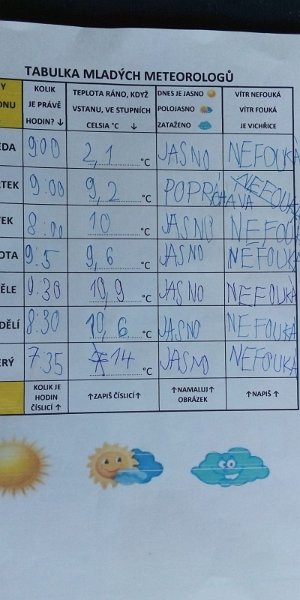 TABULKA MLADÝCH METEOROLOGŮ
KOLIK TEPLOTA RÁNO, KDYŽ DNES JE JASNO VÍTR NEFOUKÁ
JE PRÁVĚ VSTANU, VE STUPNÍCH POLOJASNO VÍTR FOUKÁ
HODIN? ↓ CELSIA °C ↓ ZATAŽENO JE VICHŘICE
EDA 900 2,1 °C JASNO NEFOUKÁ
RTEK 9:00 9,2 °C POPRCHÁVÁ NEFOUKÁ
TEK 8:00 10 °C JASNO NEFOUKÁ
OTA 9:5 9,6 °C JASNO NEFOUKÁ
ĚLE 9.30 10,9 °C JASNO NEFOUKÁ
DĚLÍ 8:30 10,6 °C JASNO NEFOUKÁ
ERÝ 7:35 14 °C JASNO NEFOUKÁ
KOLIK JE
HODIN ↑ZAPIŠ ČÍSLICÍ↑ ↑NAMALUJ↑ ↑NAPIŠ↑
ČÍSLICÍ↑ OBRÁZEK